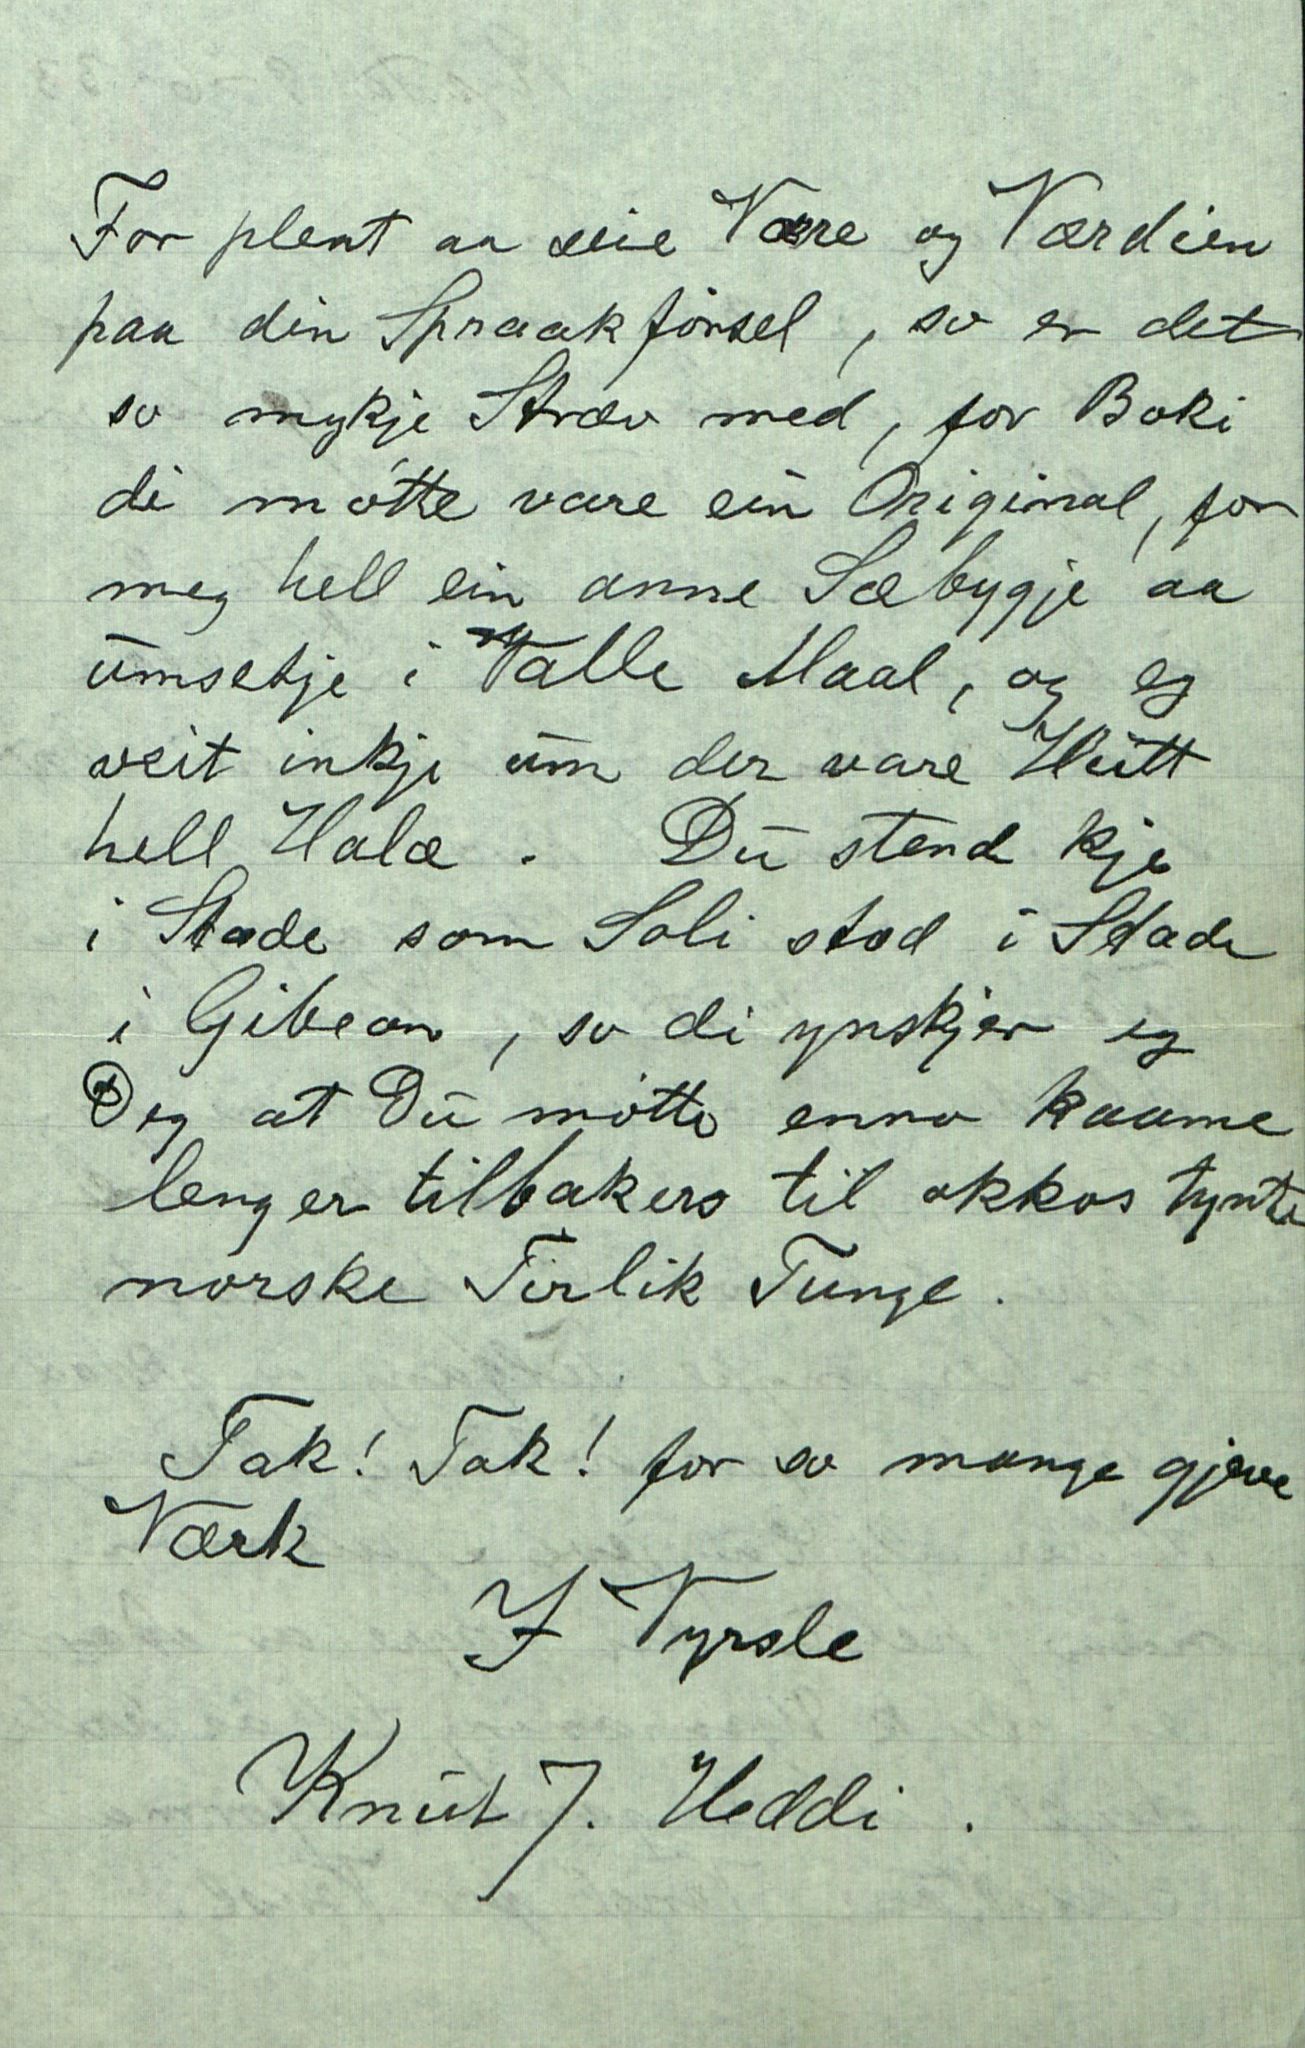 For plent aa seie Være og Værdien
paa din Spraakførsel, so er det
so mykje Stræv med, for Boki
di måtte vare ein Original, for
meg hell ein anne Sæbygje aa
ūmsetje i Valle Maal, og eg
veit inkje ūm der vare Hūtt
hell Halæ. Dū stend kje
i Stade som Soli stod i Stade
i Gibeon, so di ynskjer eg
Deg at Dū mótte enno kaame
lenger tilbakers til okkos tynte
norske Tirlik Tunge.
Tak! Tak! for so mange gjæve
Værk
I Vyrsle
Knūt J. Heddi.